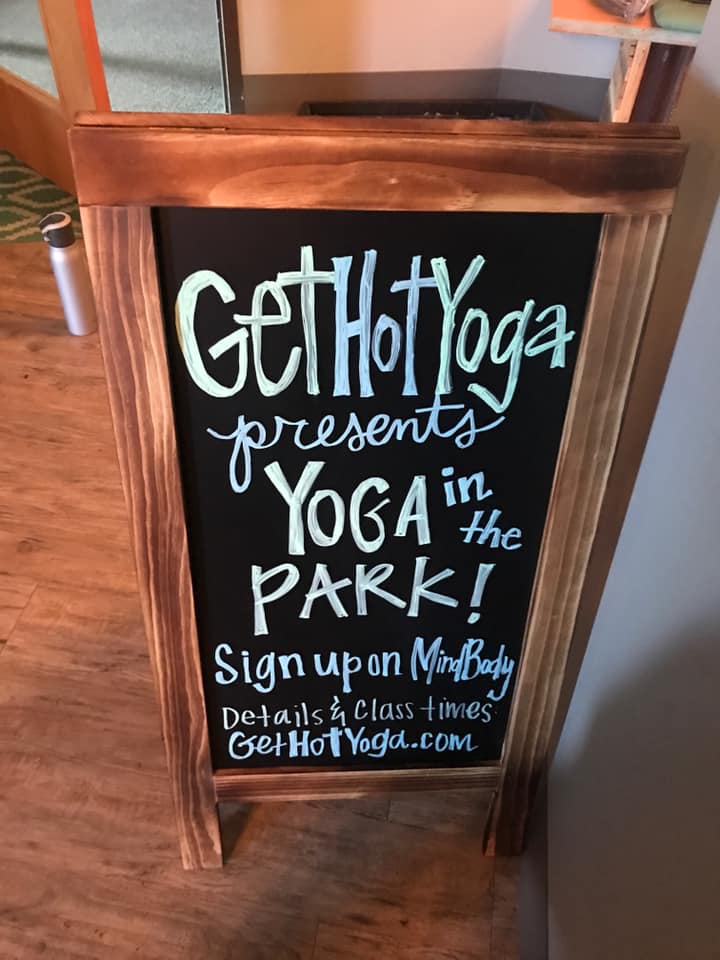 GetHotYoga
presents
YOGA in
the
PARK!
Sign up on MindBody
Details & Class times:
GetHotYoga.com